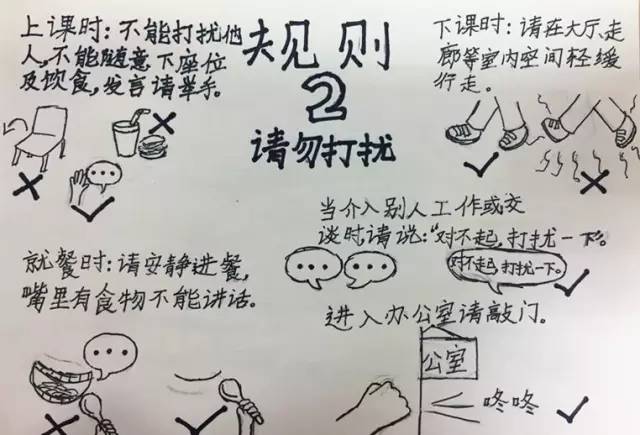 规则
2
请勿打扰
上课时：不能打扰他
人，不能随意下座位
及饮食，发言请举手。
下课时：请在大厅、走
廊等室内空间轻缓
行走。
当介入别人工作或交
谈时请说：“对不起，打扰一下”。
对不起，打扰一下。
就餐时：请安静进餐，
嘴里有食物不能讲话。
进入办公室请敲门。
公室
咚咚